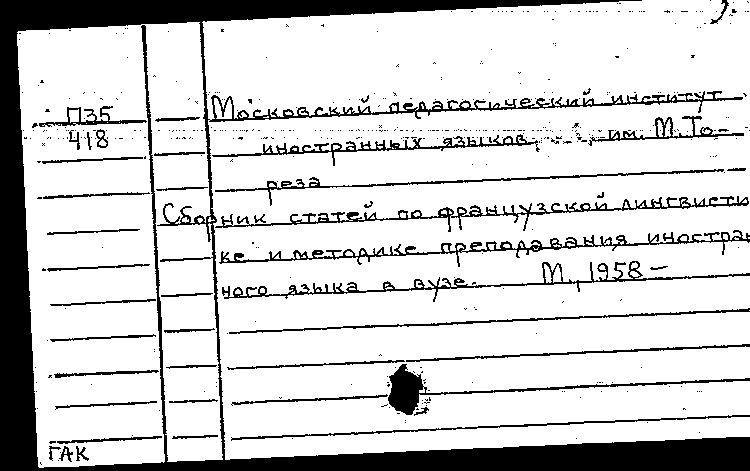 П35
418
Московский педагогический институт
иностранных языков, им. М. То-
реза
Сборник статей по французской лингвисти
ке и методике преподавания иностран
ного языка в вузе. М., 1958 —
ГАК